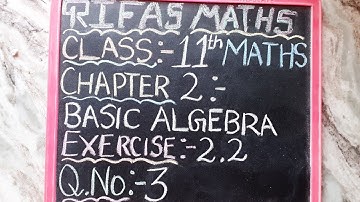 RIFAS MATHS
CLASS:-11th MATHS
CHAPTER 2:-
BASIC ALGEBRA
EXERCISE:-2.2
Q.NO:-3